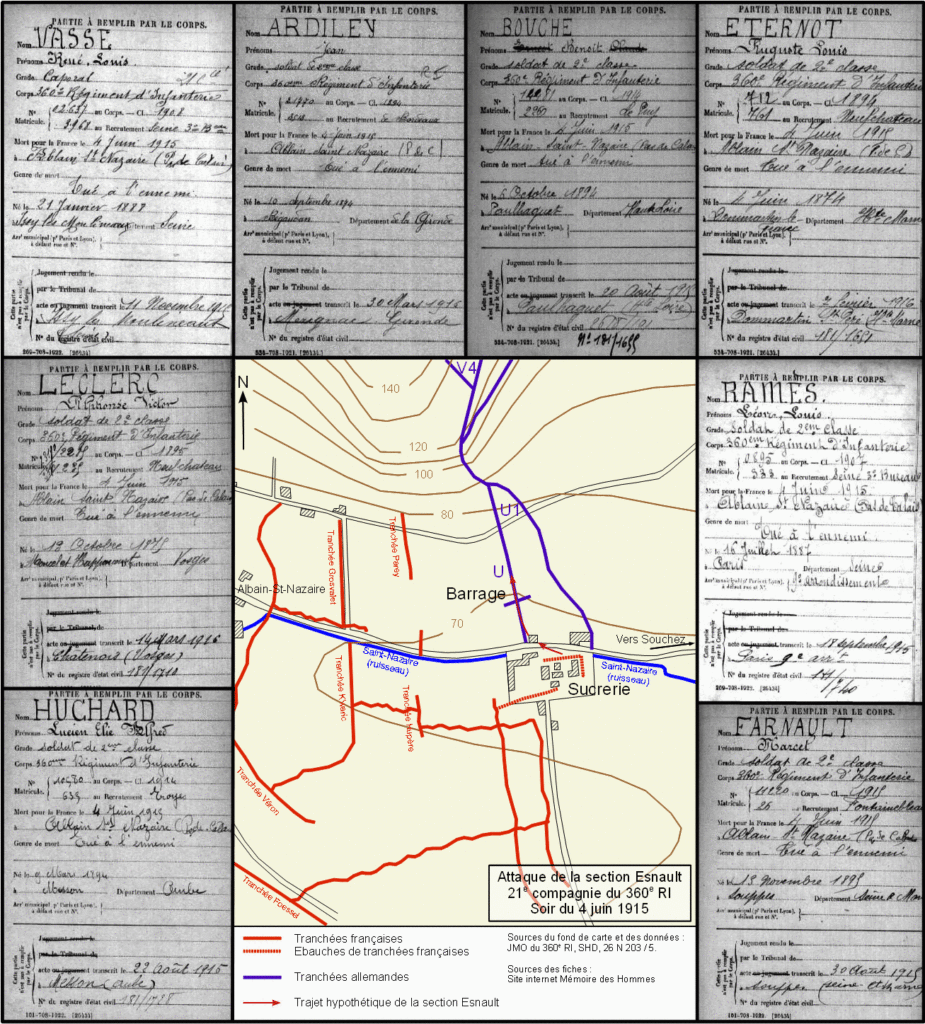 PARTIE À REMPLIR PAR LE CORPS.
Nom VASSE
Prénoms René, Louis
Grade Caporal
Corps 360e Régiment d'Infanterie
N° 12637 au Corps. — Cl. 1908
Matricule. 3968 au Recrutement Seine 3e B
Mort pour la France le 4 Juin 1915
à Ablain St Nazaire (P. de Calais)
Genre de mort
Tué à l'ennemi
Né le 21 Janvier 1888
Département Seine
Arrt municipal (pr Paris et Lyon),
à défaut rue et N°.
Cette partie n'est pas à remplir par le Corps.
Jugement rendu le
par le Tribunal de
acte ou jugement transcrit le 11 Novembre 1915
N° du registre d'état civil
269-708-1921. [26434.]
PARTIE À REMPLIR PAR LE CORPS.
Nom ARDILEY
Prénoms Jean
Grade soldat de 2eme classe
Corps 360eme Régiment d'Infanterie
au Corps. — Cl. 1894
Matricule. au Recrutement Bordeaux
Mort pour la France le 4 Juin 1915
à Ablain Saint Nazaire (P de C)
Genre de mort Tué à l'ennemi
Né le 10 Septembre 1894
à Département de la Gironde
Arrt municipal (pr Paris et Lyon),
à défaut rue et N°.
Jugement rendu le
par le Tribunal de
acte ou jugement transcrit le 30 Mars 1915
à Mérignac Gironde
N° du registre d'état civil
534-708-1921. [26434.]
PARTIE À REMPLIR PAR LE CORPS.
Nom BOUCHE
Prénoms Benoit
Grade soldat de 2e classe
Corps 360e Régiment d'Infanterie
au Corps. — Cl. 1914
Matricule. au Recrutement Le Puy
Mort pour la France le 4 Juin 1915
à Ablain-Saint-Nazaire (Pas de Calais)
Genre de mort Tué à l'ennemi
Né le 5 Octobre 1894
à Paulhaguet Département Haute Loire
Arrt municipal (pr Paris et Lyon),
à défaut rue et N°.
Jugement rendu le
par le Tribunal de
acte ou jugement transcrit le 20 Août 1915
à Paulhaguet (Hte Loire)
N° du registre d'état civil
N° 181/1655
534-708-1921. [26434.]
PARTIE À REMPLIR PAR LE CORPS.
Nom ETERNOT
Prénoms Auguste Louis
Grade soldat de 2e classe
Corps 360e Régiment d'Infanterie
N° 712 au Corps. — Cl. 1894
Matricule. 761 au Recrutement Neufchateau
Mort pour la France le 4 Juin 1915
à Ablain St Nazaire (P. de C)
Genre de mort Tué à l'ennemi
Né le 4 Juin 1874
à Dommartin le Franc Département Hte Marne
Arrt municipal (pr Paris et Lyon),
à défaut rue et N°.
Jugement rendu le
par le Tribunal de
acte ou jugement transcrit le 2 Février 1916
à Dommartin (Hte Marne)
N° du registre d'état civil 181/1651
534-708-1921. [26434.]
PARTIE À REMPLIR PAR LE CORPS.
Nom LECLERC
Prénoms Alphonse Victor
Grade soldat de 2e classe
Corps 360e Régiment d'Infanterie
au Corps. — Cl. 1895
Matricule. au Recrutement Neufchateau
Mort pour la France le 4 Juin 1915
à Ablain Saint Nazaire (Pas de Calais)
Genre de mort Tué à l'ennemi
Né le 13 Octobre 1875
Département Vosges
Arrt municipal (pr Paris et Lyon),
à défaut rue et N°.
Jugement rendu le
par le Tribunal de
acte ou jugement transcrit le 14 Mars 1916
à Chatenois (Vosges)
N° du registre d'état civil 181/1710
PARTIE À REMPLIR PAR LE CORPS.
Nom RAMES.
Prénoms Léon, Louis
Grade Soldat de 2eme Classe
Corps 360eme Régiment d'Infanterie
N° 0895 au Corps. — Cl. 1907
Matricule. 333 au Recrutement Seine 3e Bureau
Mort pour la France le 4 Juin 1915
à Ablain St Nazaire Pas de Calais
Genre de mort
Tué à l'ennemi.
Né le 16 Juillet 1887
à Paris Département Seine
Arrt municipal (pr Paris et Lyon), 9e arrondissement
à défaut rue et N°.
Jugement rendu le
par le Tribunal de
acte ou jugement transcrit le 18 septembre 1915
à Paris 9e arrt
N° du registre d'état civil 181/1740
269-708-1921. [26434.]
PARTIE À REMPLIR PAR LE CORPS.
Nom HUCHARD
Prénoms Lucien Elie Alfred
Grade soldat de 2me classe
Corps 360eme Régiment d'Infanterie
N° 10570 au Corps. — Cl. 1914
Matricule. 635 au Recrutement Troyes
Mort pour la France le 4 Juin 1915
à Ablain St Nazaire (Pas-de-Calais)
Genre de mort Tué à l'ennemi
Né le 9 Mars 1894
à Messon Département Aube
Arrt municipal (pr Paris et Lyon),
à défaut rue et N°.
Jugement rendu le
par le Tribunal de
acte ou jugement transcrit le 22 août 1915
à Messon (Aube)
N° du registre d'état civil 181/1728
101-708-1922. [26434]
PARTIE À REMPLIR PAR LE CORPS.
Nom FARNAULT
Prénoms Marcel
Grade soldat de 2e classe
Corps 360e Régiment d'Infanterie
N° 11220 au Corps. — Cl. 1915
Matricule. 26 au Recrutement Fontainebleau
Mort pour la France le 4 Juin 1915
à Ablain St Nazaire (P. de Calais)
Genre de mort Tué à l'ennemi
Né le 13 Novembre 1895
à Souppes Département Seine & Marne
Arrt municipal (pr Paris et Lyon),
à défaut rue et N°.
Jugement rendu le
par le Tribunal de
acte ou jugement transcrit le 30 Août 1915
à Souppes (seine et marne)
N° du registre d'état civil
101-708-1922. [26434]
N
V4
140
120
100
80
U1
U
Tranchée Grosvalet
Tranchée Peresy
Albain-St-Nazaire
Barrage
70
Vers Souchez
Saint-Nazaire
(ruisseau)
Saint-Nazaire
(ruisseau)
Sucrerie
Tranchée Véron
Tranchée Foessel
Attaque de la section Esnault
21e compagnie du 360e RI
Soir du 4 juin 1915
Tranchées françaises
Ebauches de tranchées françaises
Tranchées allemandes
Trajet hypothétique de la section Esnault
Sources du fond de carte et des données :
JMO du 360e RI, SHD, 26 N 203 / 5.
Sources des fiches :
Site internet Mémoire des Hommes